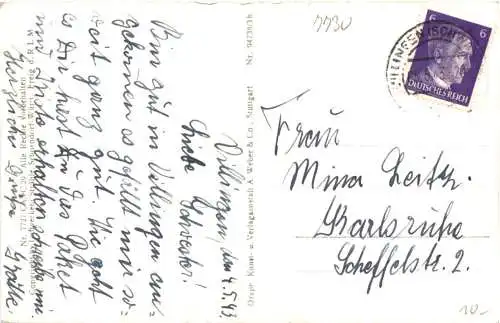 7730
Villingen, den 4.5.43.
Liebe Schwester!
Bin gut in Villingen an-
gekommen es gefällt mir so-
weit ganz gut. Wie geht
es Dir hast Du das Paket
mit erhalten schreibe mir
Herzlicher Grüße
Nr. 94230/3 b
Origr. Kunst- u. Verlagsanstalt A. Weber & Co., Stuttgart
Alle Rechte vorbehalten
VILLINGEN (SCHW
6 6
DEUTSCHES REICH
Frau
Mina Leitz
Karlsruhe
Scheffelstr. 2.
10.-